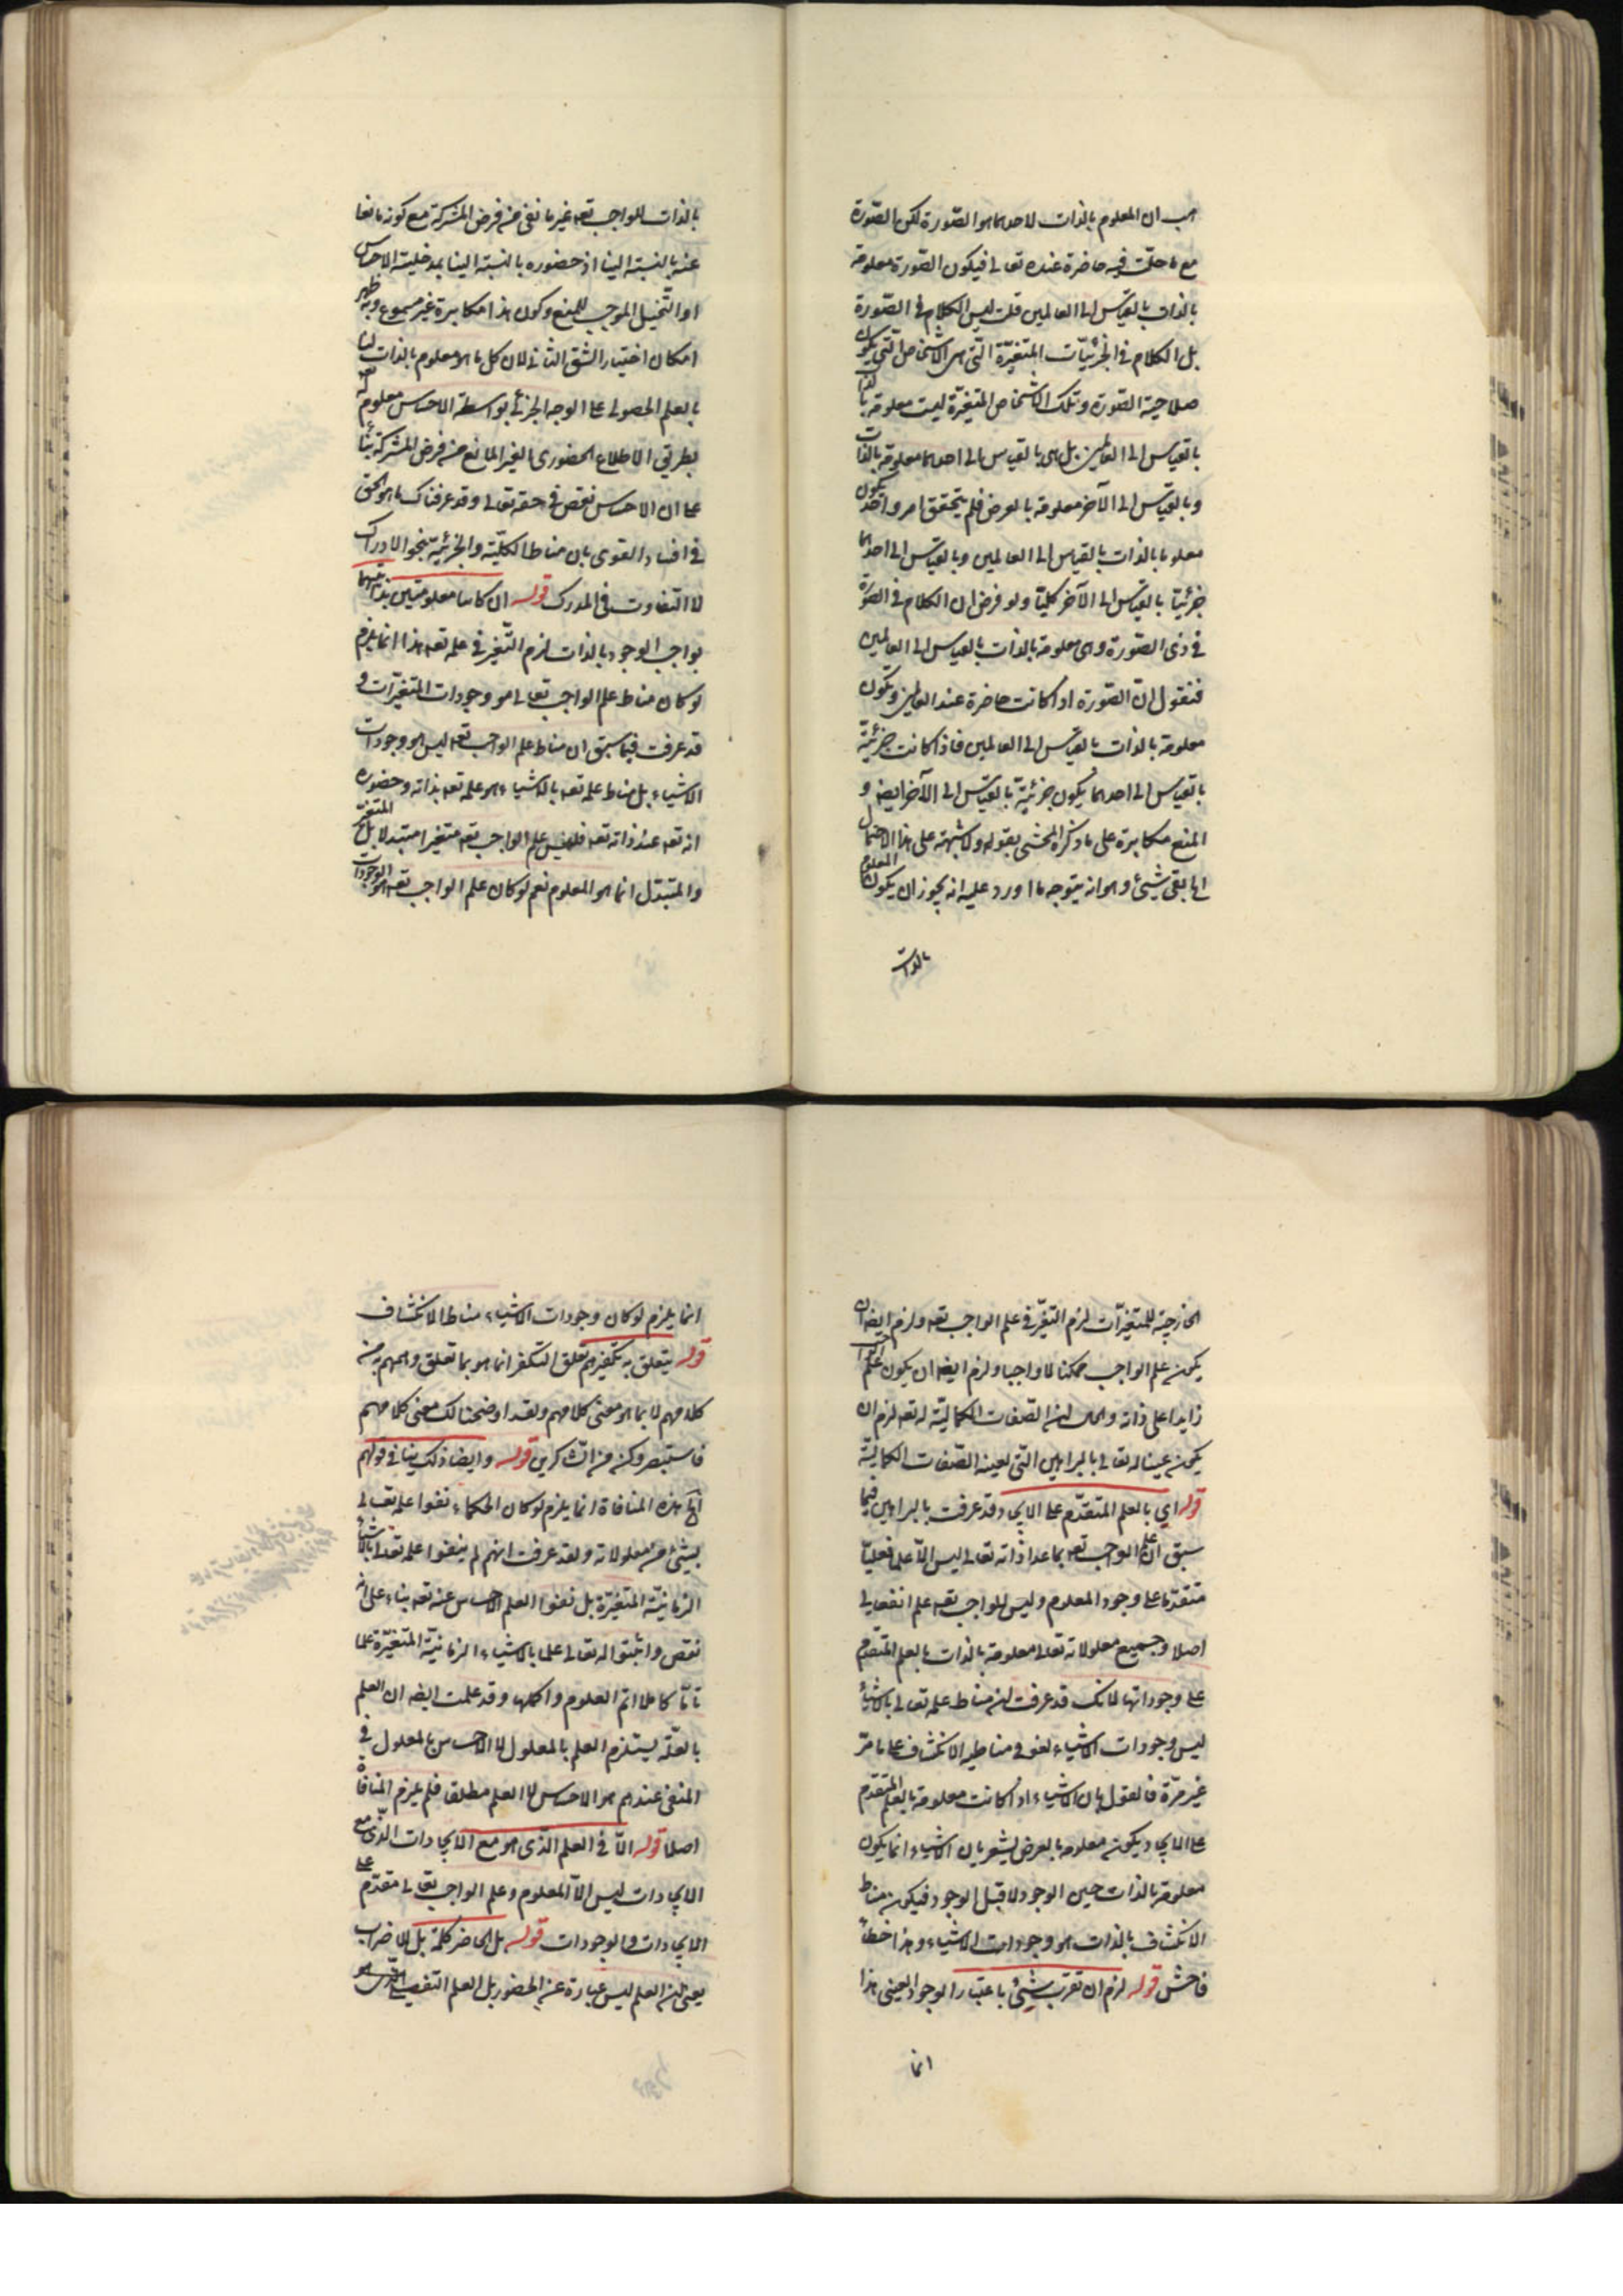 هب ان المعلوم بالذات لاحدهما هو الصّورة لكن الصّورة
مع ما حلّت فيه حاضرة عنده تعالى فيكون الصّورة معلومة
بالذات بالقياس الى العالمين قلت ليس الكلام فى الصّورة
بل الكلام فى الجزئيّات المتغيّرة التّى هى الاشخاص التى يكون
صلاحية الصّورة وتلك الاشخاص المتغيّرة ليست معلومة
بالقياس الى العالمين بل هى بالقياس الى احدهما معلومة بالذات
وبالقياس الى الآخر معلومة بالعرض فلم يتحقق امر واحد يكون
معلوما بالذات بالقياس الى العالمين وبالقياس الى احدهما
جزئيّا بالقياس الى الآخر كليّا ولو فرض ان الكلام فى الصّورة
فى ذى الصّورة وهى معلومة بالذات بالقياس الى العالمين
فنقول انّ الصّورة اذا كانت حاضرة عند العالمين ويكون
معلومة بالذات بالقياس الى العالمين فاذا كانت جزئيّة
بالقياس الى احدهما يكون جزئيّة بالقياس الى الآخر ايضه و
المنع مكابرة على ما ذكره المحشى بقوله ولا شبهة على هذا الاحتمال
بقى شيئ وهو انه يتوجه ما اورد عليه انه يجوز ان يكون المعلوم
بالذات
بالذات للواجب تعه غير مانع فى فرض المشركة مع كونه مانعا
عنه بالنسبة الينا اذ حضوره بالنسبة الينا بمدخلية الاحساس
او التّخيل الموجب للمنع وكون هذا مكابرة غير مسموع وبه ظهر
امكان اختيار الشق الثانى لان كل ما هو معلوم بالذات لنا
بالعلم الحصولى على الوجه الجزئى بواسطة الاحساس معلوم له تعه
بطريق الاطلاع الحضورى الغير المانع من فرض المشركة بناء
على ان الاحساس نقص فى حقه تعالى وقد عرفناك ما هو الحق
فى افساد القوى بان مناط الكليّة والجزئية بنحو الادراك
لا التفاوت فى المدرك قوله ان كانتا معلومتين بذاتيهما
بواجب الوجود بالذات لزم التّغير فى علمه تعه هذا انما يلزم
لو كان مناط علم الواجب تعالى هو وجودات المتغيّرات و
قد عرفت فيما سبق ان مناط علم الواجب تعه ليس هو وجودات
الاشياء بل مناط علمه تعه بالاشياء هو علمه تعه بذاته وحضوره
انه تعه عند ذاته تعه فليس علم الواجب تعه متغيرا متبدلا بل المتغير
والمتبدل انما هو المعلوم نعم لو كان علم الواجب تعه هو الوجودات
الخارجيّة للمتغيّرات لزم التّغيّر فى علم الواجب تعه ولزم ايضه ان
يكون علم الواجب ممكنا لا واجبا ولزم ايضه ان يكون علم الواجب
زايدا على ذاته والحال ان الصّفات الكماليّة له تعه لزم ان
يكون عينا له تعالى بالبراهين التّى لعينه الصّفات الكماليّة
قوله اي بالعلم المتقدّم على الايجاد وقد عرفت بالبراهين فيما
سبق ان علم الواجب تعه بما عدا ذاته تعالى ليس الاّ علما فعليّا
متقدّما على وجود المعلوم وليس للواجب تعه علم انفعالى
اصلا وجميع معلولاته تعالى معلومة بالذات بالعلم المتقدّم
على وجوداتها لانك قد عرفت ان مناط علمه تعالى بالاشياء
ليس وجودات الاشياء لغو فى مناطيه الانكشاف على ما مرّ
غير مرّة فالقول بان الاشياء اذا كانت معلومة بالعلم المتقدم
على الايجاد يكون معلومة بالعرض يشعر بان الاشياء انما يكون
معلومة بالذات حين الوجود لا قبل الوجود فيكون مناط
الانكشاف بالذات هو وجودات الاشياء وهذا خطاء
فاحش قوله لزم ان تقرب شيئ باعتبار الوجود العينى هذا
انما
انما يلزم لو كان وجودات الاشياء مناط الانكشاف
قوله يتعلق به تكفيرهم تعلق التكفر انما هو بما تعلق وهمهم به من
كلامهم لا بما هو معنى كلامهم ولقد اوضحنا لك معنى كلامهم
فاستبصر وكن من الشاكرين قوله وايضا ذلك ينافى قولهم
هذه المنافاة انما يلزم لو كان الحكماء نفوا علمه تعالى
بشيئ من معلولاته ولقد عرفت انهم لم ينفوا علمه تعه بالاشياء
الزمانيّة المتغيّرة بل نفوا العلم الاحساس عنه تعه بناء على انه
نقص واثبتوا له تعالى علما بالاشياء الزمانيّة المتغيّرة علما
تامّا كاملا اتم العلوم واكملها وقد علمت ايضه ان العلم
بالعلّة يستلزم العلم بالمعلول لا الاحساس بالمعلول و
المنفى عندهم هو الاحساس لا العلم مطلقا فلم يلزم المنافاة
اصلا قوله الاّ فى العلم الّذى هو مع الايجادات الّذى مع
الايجادات ليس الاّ المعلوم وعلم الواجب تعالى مقدّم على
الايجادات والوجودات قوله بل الحاضر كلمة بل للاضراب
يعنى ان العلم ليس عبارة عن الحضور بل العلم التفصيلى الذى هو